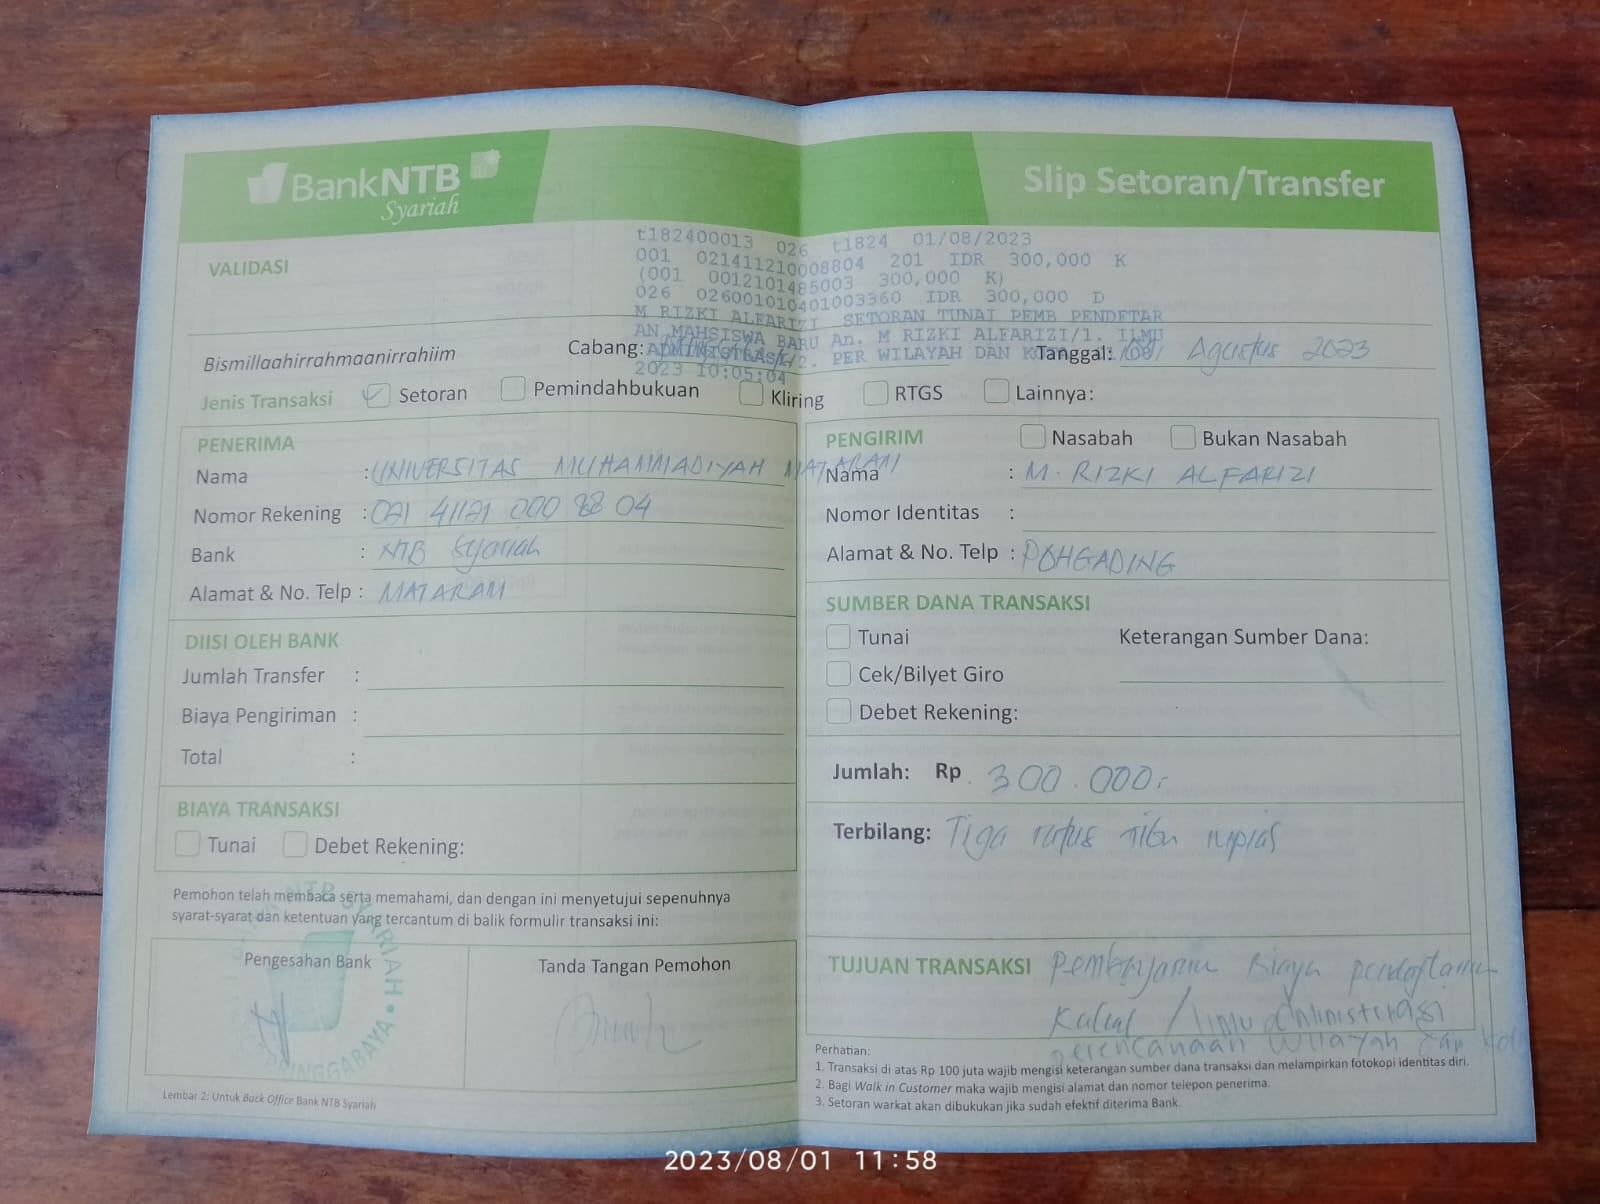 BankNTB
Syariah
Slip Setoran/Transfer
VALIDASI
t182400013 026 t1824 01/08/2023
001 021411210008804 201 IDR 300,000 K
(001 0012101485003 300,000 K)
026 026001010401003360 IDR 300,000 D
M RIZKI ALFARIZI SETORAN TUNAI PEMB PENDETAR
AN MAHSISWA BARU An. M RIZKI ALFARIZI/1. ILMU
ADMINISTRASI/2. PER WILAYAH DAN
2023 10:05:04
Bismillaahirrahmaanirrahiim
Cabang:
Tanggal: Agustus 2023
Jenis Transaksi Setoran Pemindahbukuan Kliring RTGS Lainnya:
PENERIMA
Nama : UNIVERSITAS MUHAMMADIYAH MATARAM
Nomor Rekening : 021 41121 000 88 04
Bank : NTB Syariah
Alamat & No. Telp : MATARAM
PENGIRIM Nasabah Bukan Nasabah
Nama : M. RIZKI ALFARIZI
Nomor Identitas :
Alamat & No. Telp : POHGADING
DIISI OLEH BANK
Jumlah Transfer :
Biaya Pengiriman :
Total :
SUMBER DANA TRANSAKSI
Tunai Keterangan Sumber Dana:
Cek/Bilyet Giro
Debet Rekening:
BIAYA TRANSAKSI
Tunai Debet Rekening:
Jumlah: Rp. 300.000,-
Terbilang: Tiga ratus ribu rupias
Pemohon telah membaca serta memahami, dan dengan ini menyetujui sepenuhnya
syarat-syarat dan ketentuan yang tercantum di balik formulir transaksi ini:
Pengesahan Bank
Tanda Tangan Pemohon
TUJUAN TRANSAKSI Pembayaran Biaya pendaftaran
Kuliah / ilmu administrasi
perencanaan wilayah dan
Perhatian:
1. Transaksi di atas Rp 100 juta wajib mengisi keterangan sumber dana transaksi dan melampirkan fotokopi identitas diri.
2. Bagi Walk in Customer maka wajib mengisi alamat dan nomor telepon penerima.
3. Setoran warkat akan dibukukan jika sudah efektif diterima Bank.
Lembar 2: Untuk Back Office Bank NTB Syariah
2023/08/01 11:58